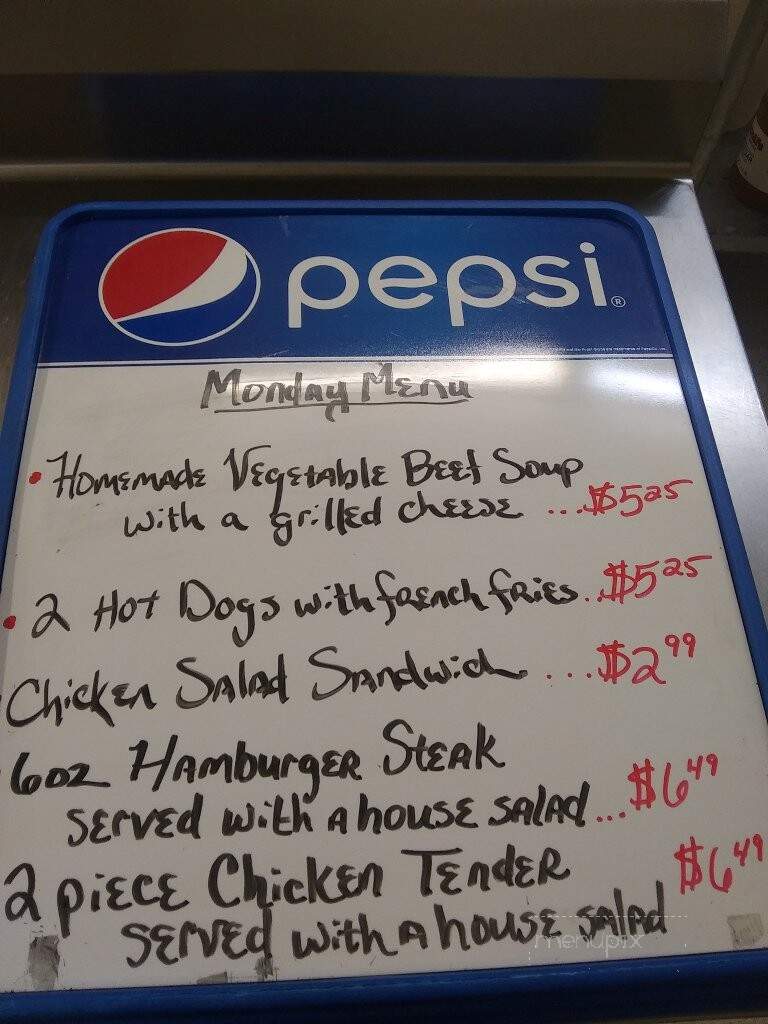 pepsi®
Monday Menu
• Homemade Vegetable Beef Soup
with a grilled cheese ... $5 25
• 2 Hot Dogs with french fries.. $5 25
Chicken Salad Sandwich ... $2 99
6oz Hamburger Steak
served with a house salad... $6 49
2 piece Chicken Tender $6 49
served with a house salad
menupix